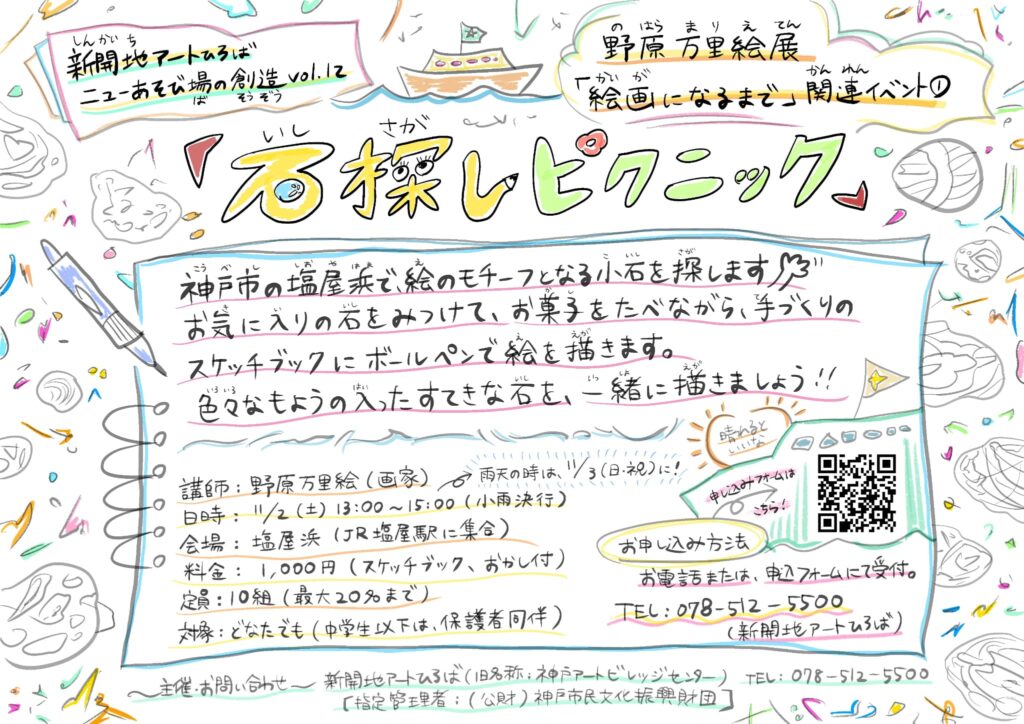 新開地アートひろば
ニューあそび場の創造 vol.12
野原万里絵展
「絵画になるまで」関連イベント①
「石探しピクニック」
神戸市の塩屋浜で、絵のモチーフとなる小石を探します
お気に入りの石をみつけて、お菓子をたべながら、手づくりの
スケッチブックにボールペンで絵を描きます。
色々なもようの入ったすてきな石を、一緒に描きましょう!!
晴れると
いいな
講師:野原万里絵(画家)
雨天の時は、11/3(日・祝)に!
日時:11/2(土)13:00~15:00(小雨決行)
会場:塩屋浜(JR塩屋駅に集合)
料金:1,000円(スケッチブック、おかし付)
定員:10組(最大20名まで)
対象:どなたでも(中学生以下は、保護者同伴)
申し込みフォームは
こちら!
お申し込み方法
お電話または、申込フォームにて受付。
TEL:078-512-5500
(新開地アートひろば)
~主催・お問い合わせ~ 新開地アートひろば(旧名称:神戸アートビレッジセンター) TEL:078-512-5500
[指定管理者:(公財)神戸市民文化振興財団]